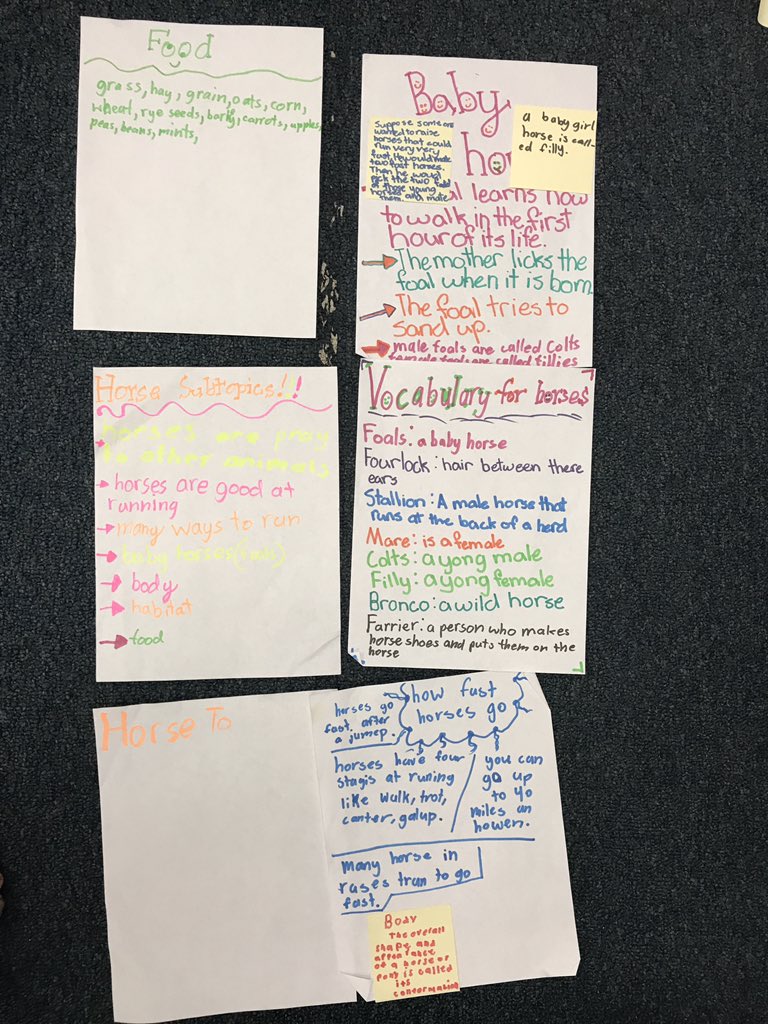 Food
grass, hay, grain, oats, corn,
wheat, rye seeds, barly, carrots, apples,
peas, beans, mints,
Baby
ho
Suppose someone
wanted to raise
horses that could
run very very
fast. He would mate
two fast horses.
Then he would
pick the two
of those young
horses and mate
them.
a baby girl
horse is call-
ed filly.
al learns how
to walk in the first
hour of its life.
→ The mother licks the
foal when it is born
→ The foal tries to
sand up.
→ male foals are called Colts
female foals are called fillies
Horse Subtopics!!
→ horses are pray
to other animals
→ horses are good at
running
→ many ways to run
→ baby horses(foals)
→ body
→ habitat
→ food
Vocabulary for horses
Foals: a baby horse
Fourlock: hair between there
ears
Stallion: A male horse that
runs at the back of a herd
Mare: is a female
Colts: a yong male
Filly: a yong female
Bronco: a wild horse
Farrier: a person who makes
horse shoes and puts them on the
horse
Horse To
how fast
horses go
horses go
fast after
a jumep.
horses have four
stagis at runing
like walk, trot,
canter, galup.
you can
go up
to 40
miles an
howen.
Many horse in
rases tran to go
fast.
Body
The overall
shape and
of a horse or
pony is called
its
conformation